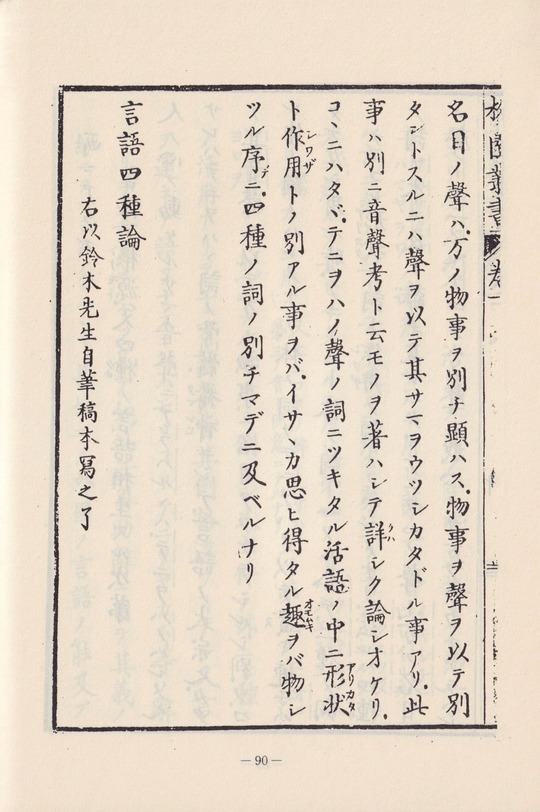 名目ノ聲ハ万ノ物事ヲ別チ顕ハス。物事ヲ聲ヲ以テ別
タントスルニハ聲ヲ以テ其サマヲウツシカタドル事アリ。此
事ハ別ニ音聲考ト云モノヲ著ハシテ詳シク論シオケリ。
クハ
コヽニハタヾテニヲハノ聲ノ詞ニツキタル活語ノ中ニ形状
アリカタ
ト作用トノ別アル事ヲバ。イサヽカ思ヒ得タル趣ヲバ物シ
シワザ
オモムキ
ツル序ニ。四種ノ詞ノ別チマデニ及ベルナリ
デ
言語四種論
右以鈴木先生自筆稿本冩之了
—90—